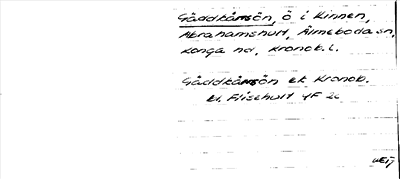 Gäddkåmsön, ö i Kinnen,
Abrahamshult, Älmeboda sn,
Konga hd, Kronob. l.
Gäddkåmsön ek Kronob.
bl. Flischult 4F